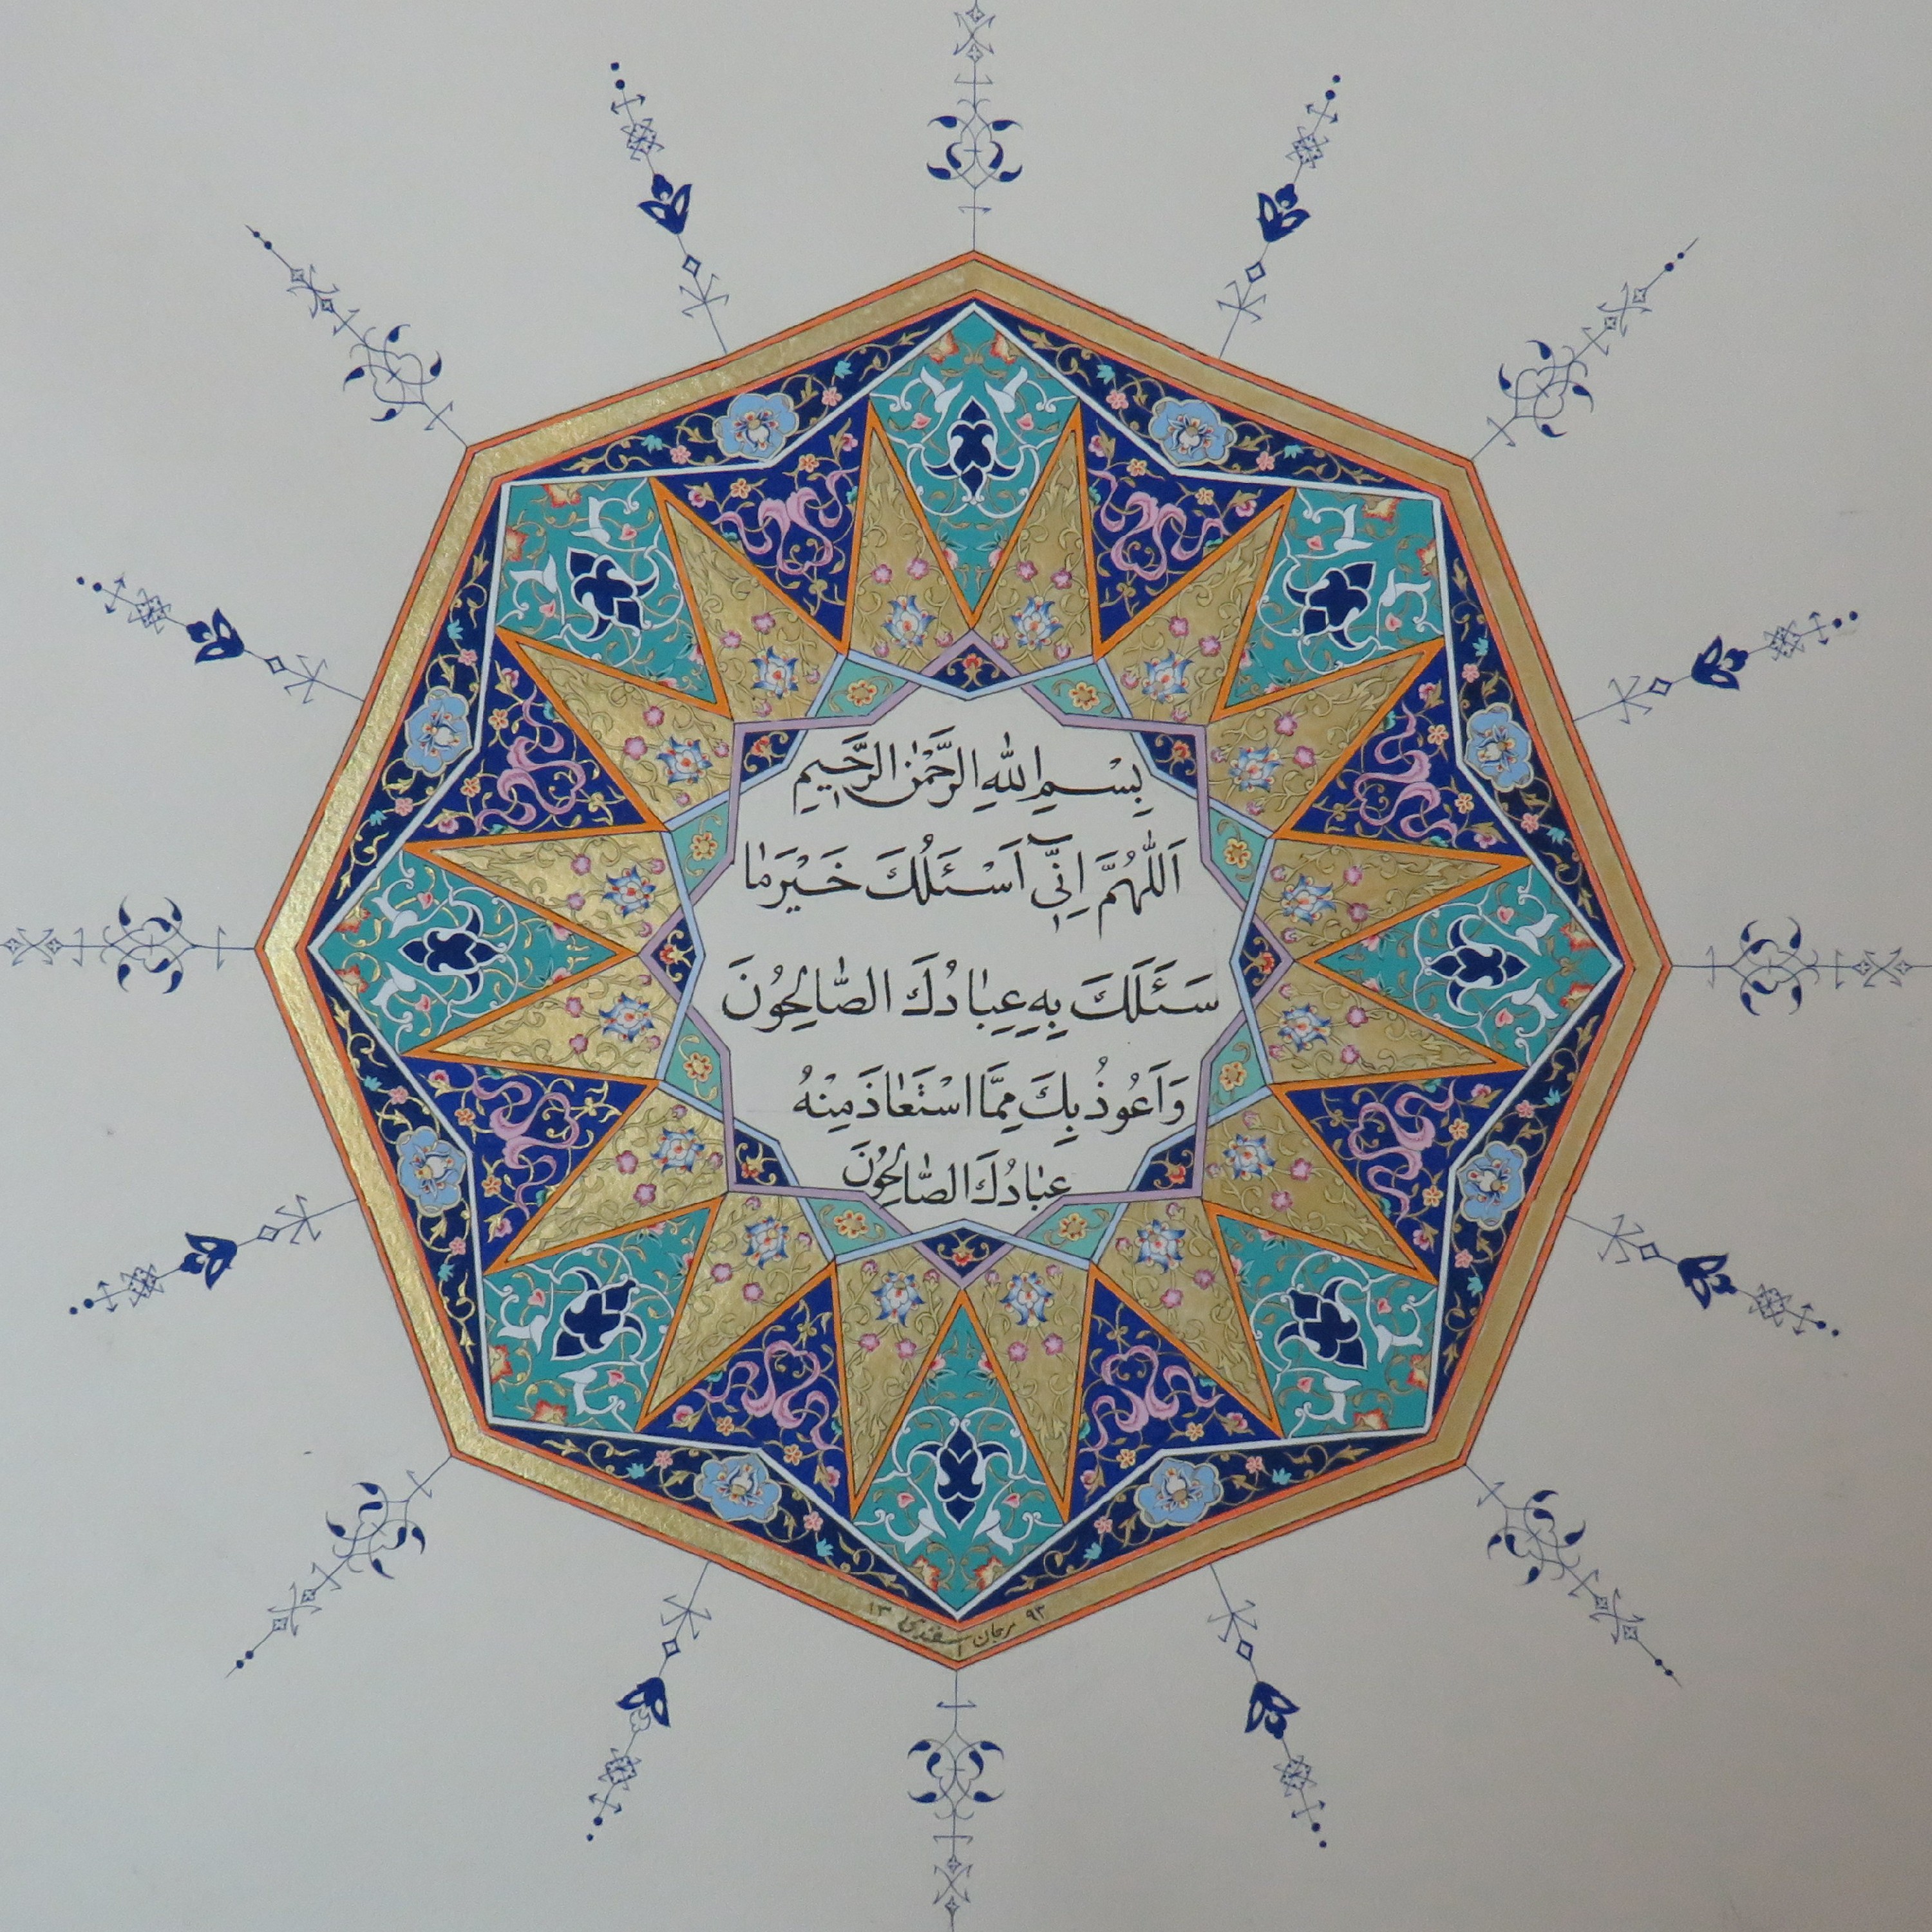 بِسْمِ اللهِ الرَّحْمٰنِ الرَّحيمِ
اَللّٰهُمَّ اِنّيٓ اَسْئَلُكَ خَيْرَ مٰا
سَئَلَكَ بِهِ عِبٰادُكَ الصّٰالِحُونَ
وَ اَعُوذُ بِكَ مِمَّا اسْتَعٰاذَ مِنْهُ
عِبٰادُكَ الصّٰالِحُونَ
مرجان اسفندی ۱۳ ۹۳